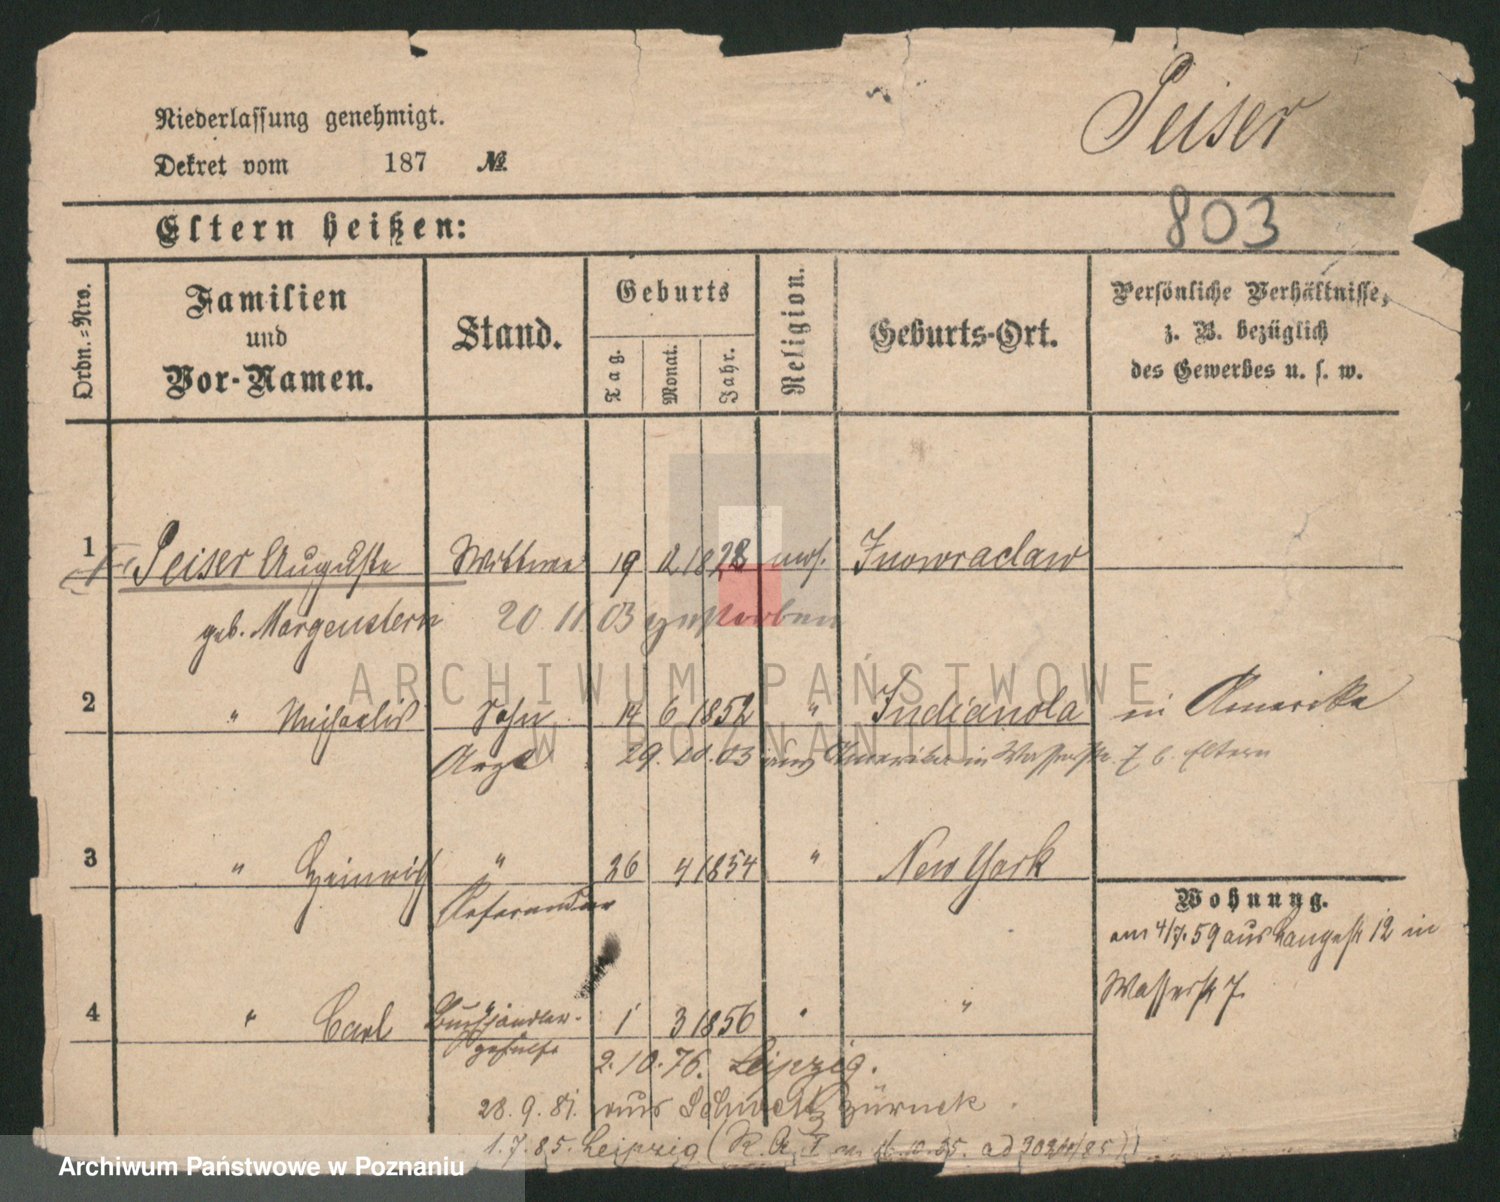 Peiser
Niederlassung genehmigt.
Dekret vom 187 №
803
Eltern heißen:
Ordn.=Nro.
Familien und Vor-Namen.
Stand.
Geburts
Tag. Monat. Jahr.
Religion.
Geburts-Ort.
Persönliche Verhältnisse,
z. B. bezüglich
des Gewerbes u. s. w.
1 Peiser Auguste Wittwe 19 12 1828 mos. Inowraclaw
geb. Morgenstern 20 11 03 gestorben
2 " Michaelis Sohn 14 6 1852 " Indianola in Amerika
Arzt 29. 10. 03 aus Amerika in Wasserstr. 7 b. Eltern
3 " Heinrich " 26 4 1854 " New York
Referendar
Wohnung.
am 4/7. 59 aus Langestr 12 in
Wasserstr 7.
4 " Carl Buchhändler- 1 3 1856 " "
gehülfe
2. 10. 76. Leipzig.
28. 9. 81. aus zurück
1. 7. 85. Leipzig
ARCHIWUM PAŃSTWOWE
W POZNANIU
Archiwum Państwowe w Poznaniu